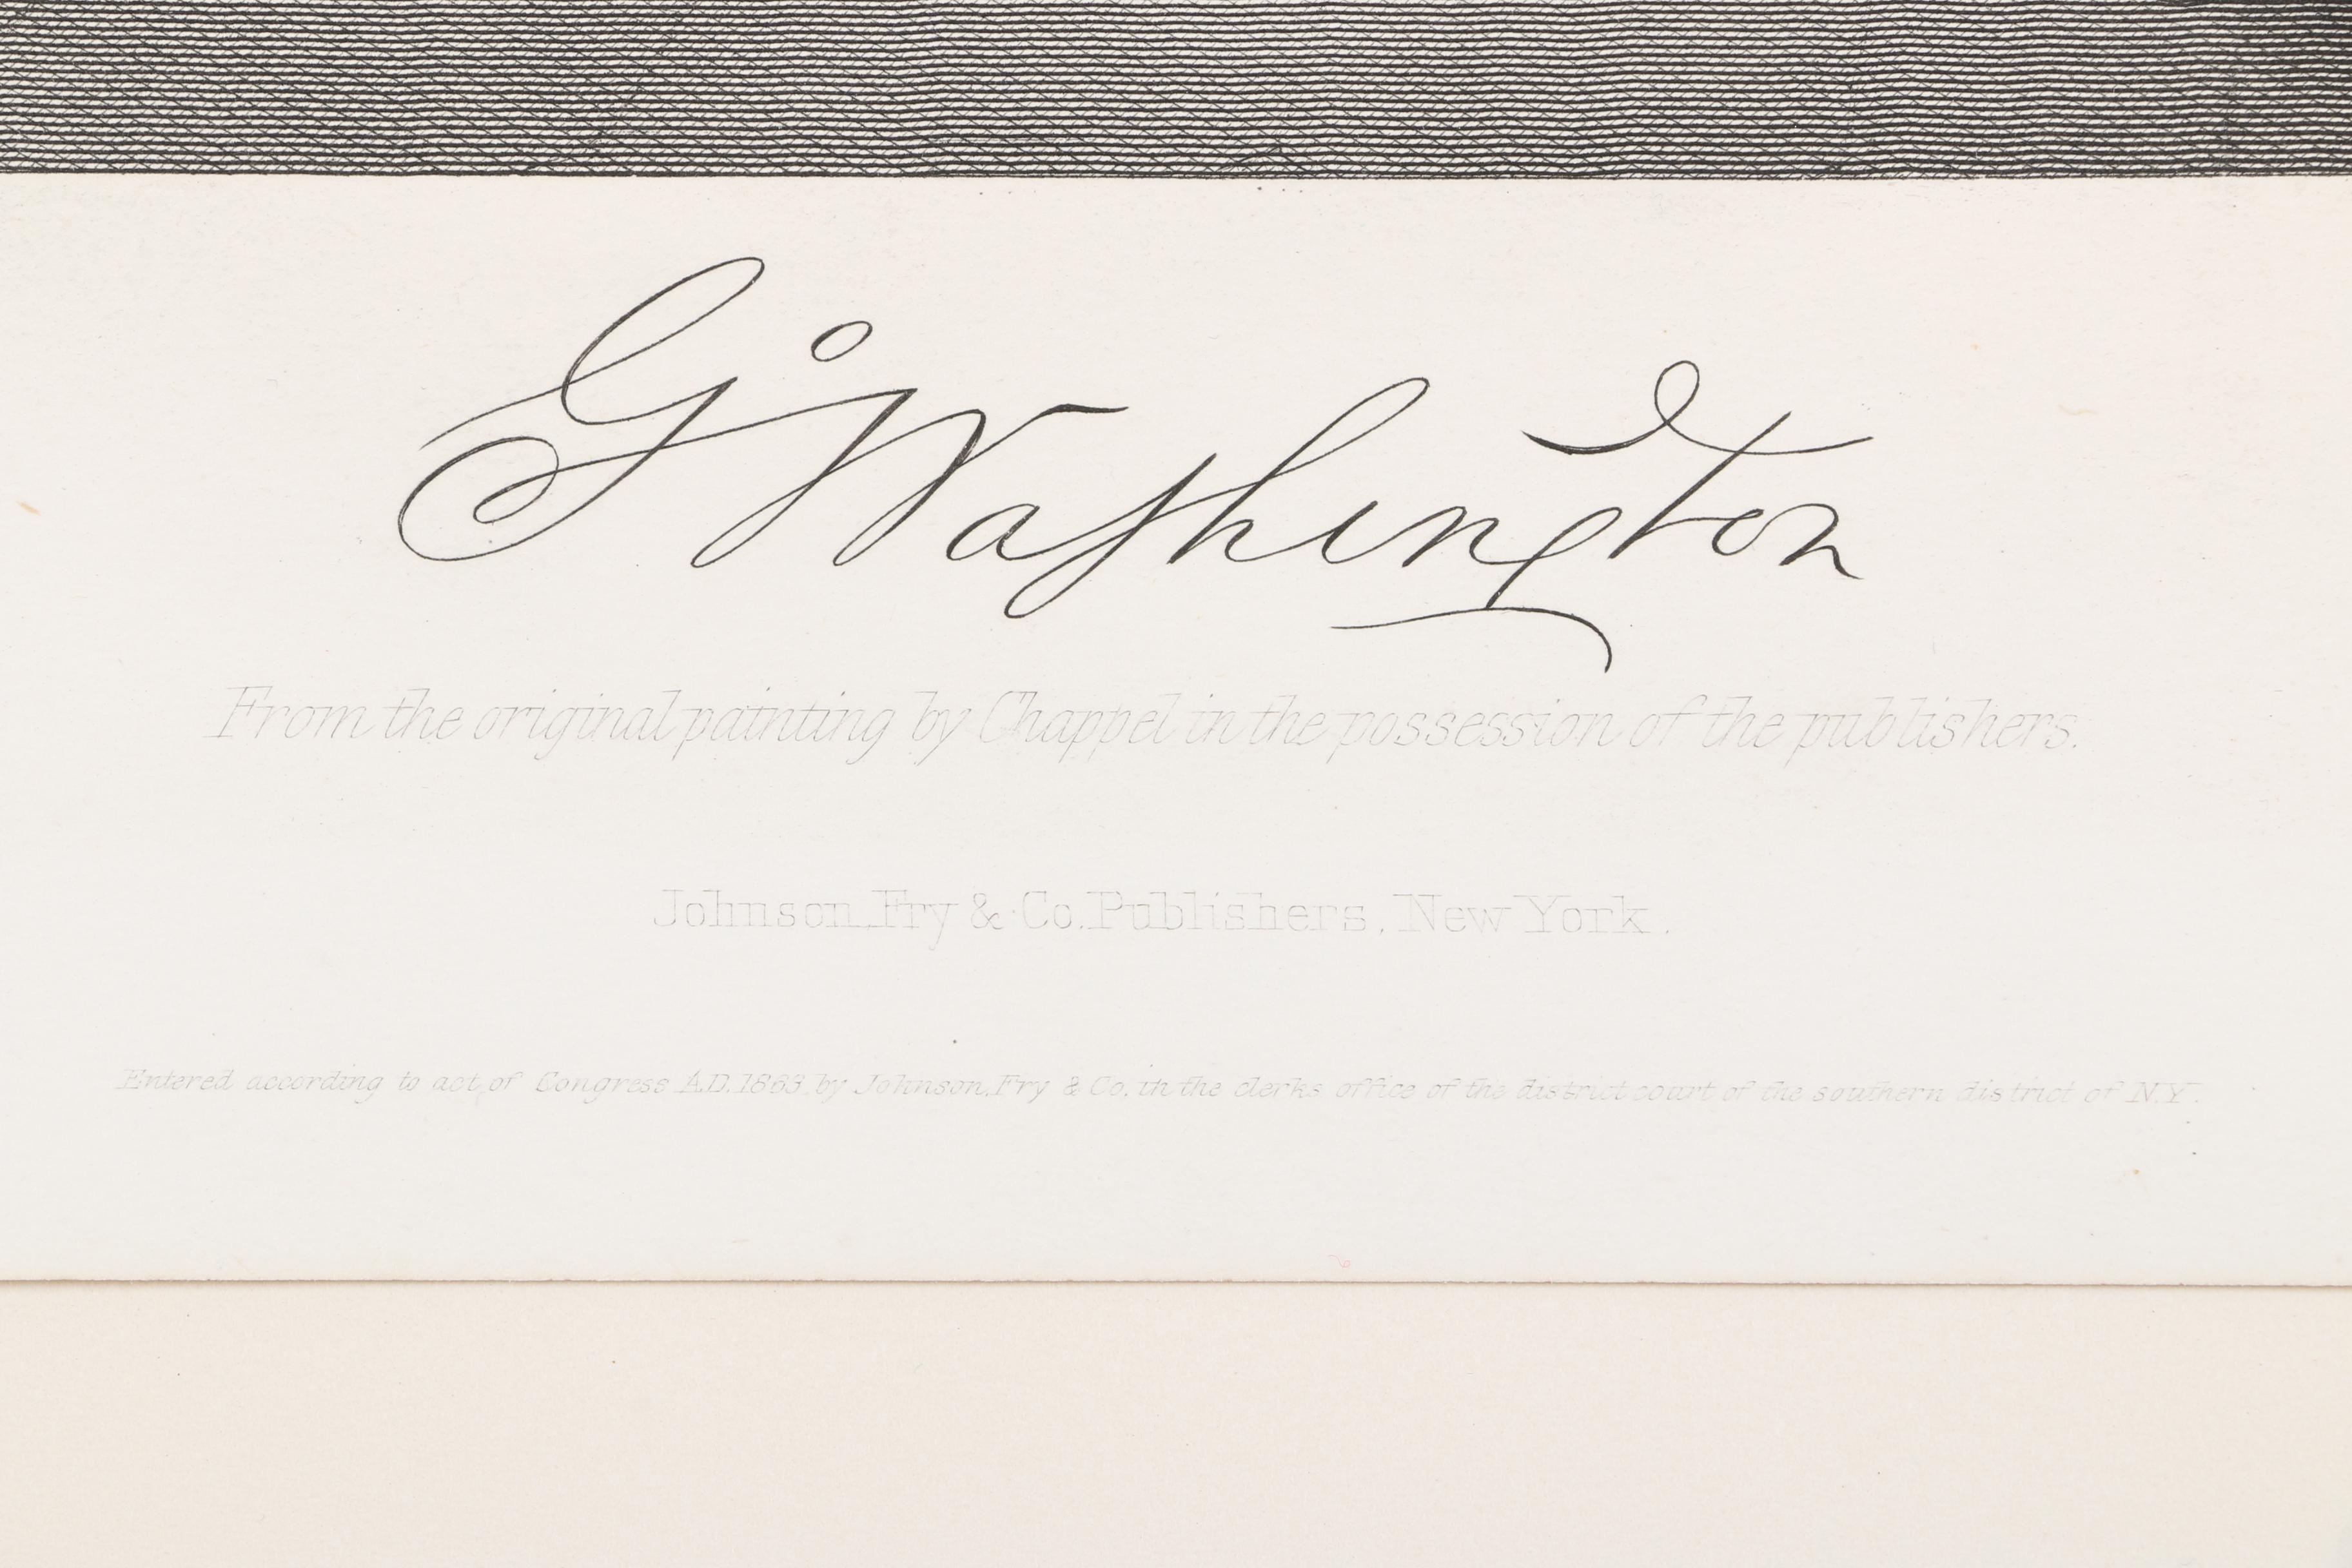 Go Washington
From the original painting by Chappel in the possession of the publishers.
Johnson, Fry & Co. Publishers, New York.
Entered according to act of Congress A.D. 1863 by Johnson, Fry & Co. in the clerks office of the district court of the southern district of N.Y.